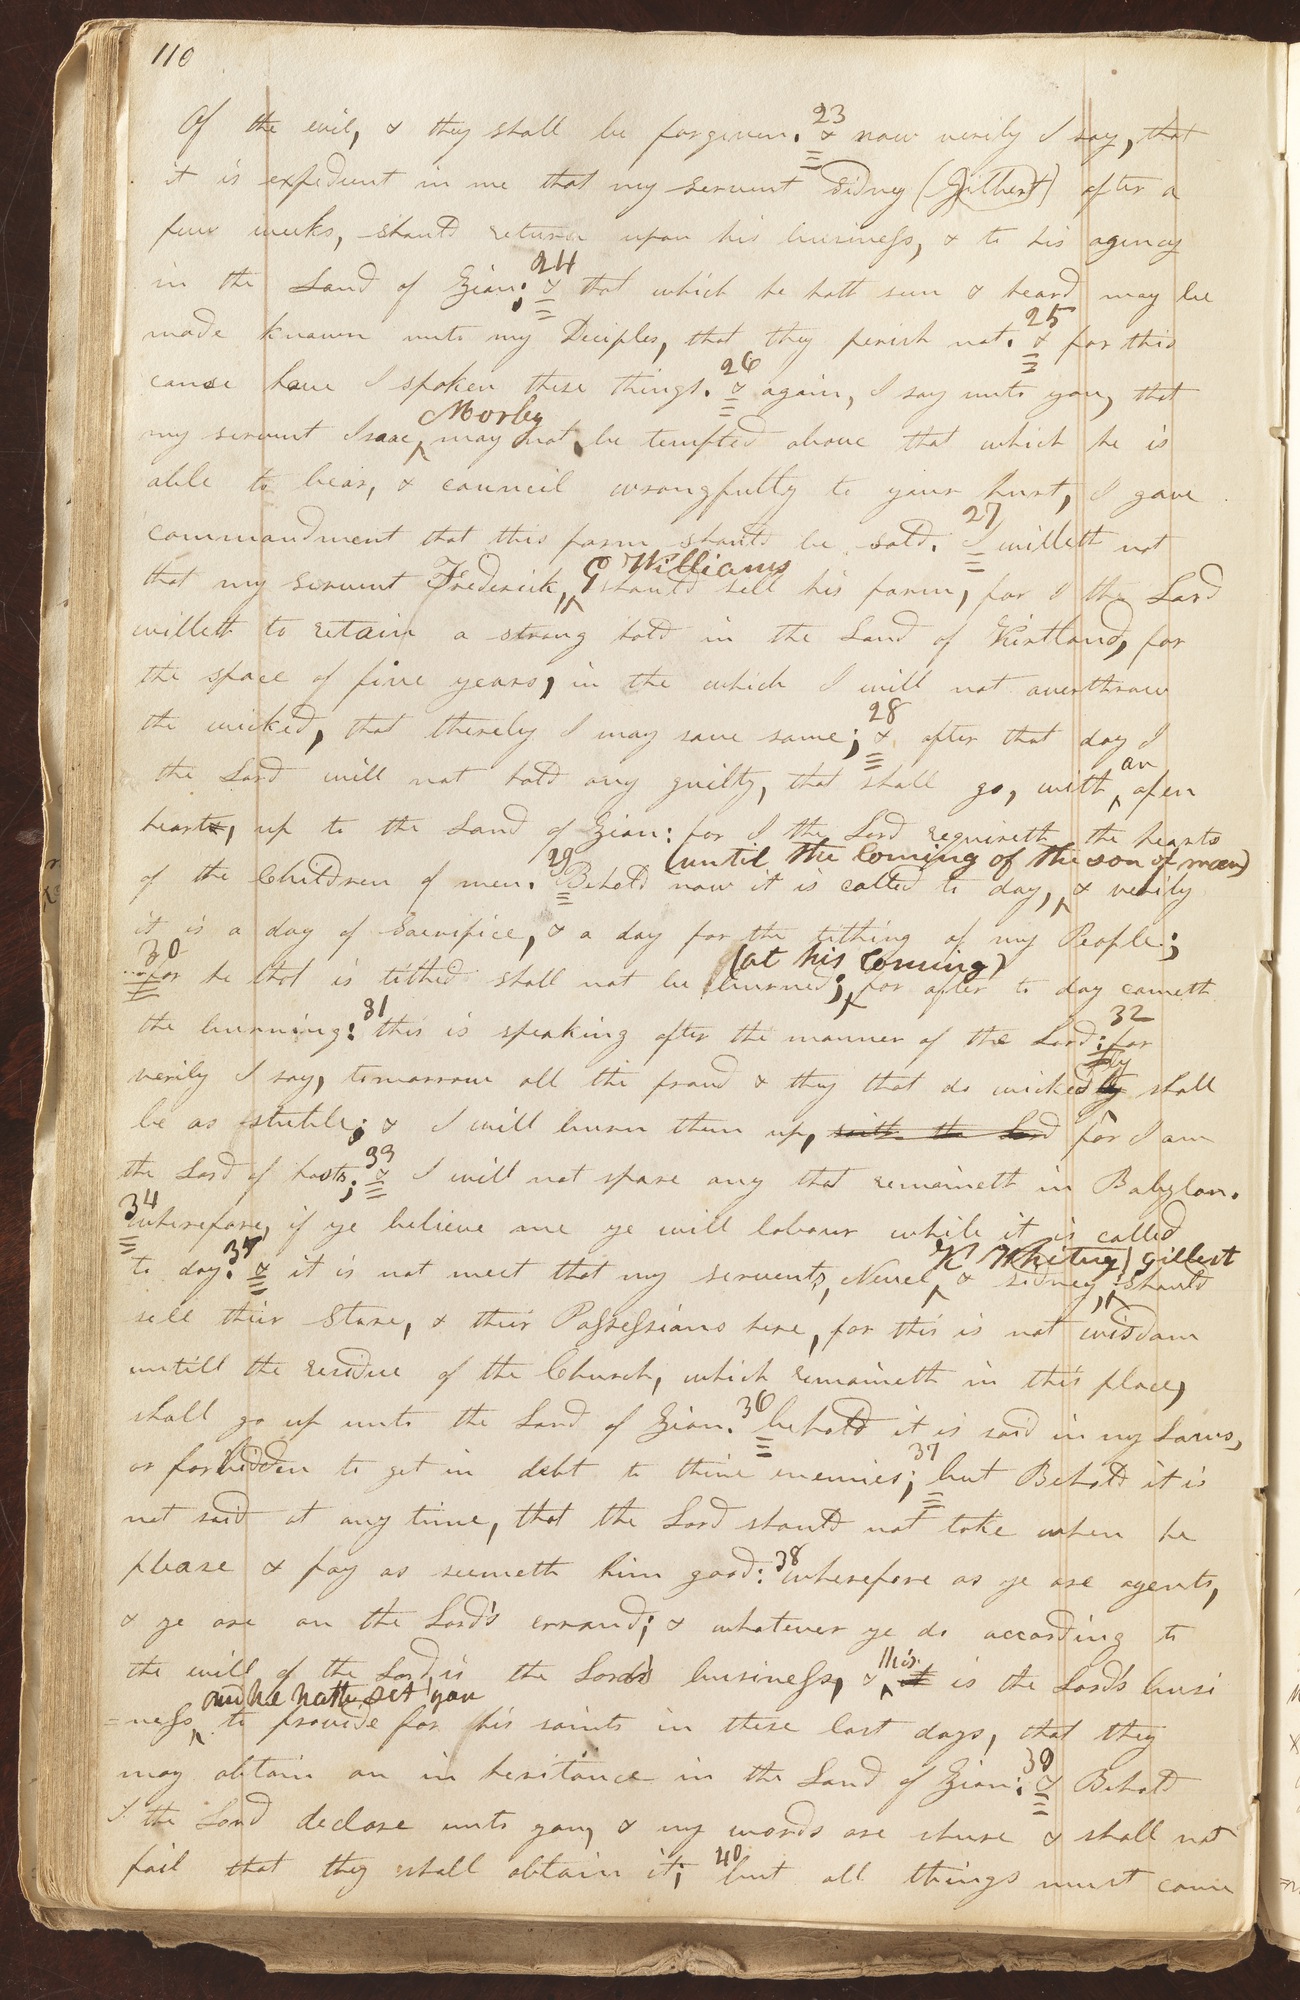 110
Of the evil, & they shall be forgiven. 23 & now verily I say, that
it is expedient in me that my servent Sidney (Gilbert) after a
few weeks, should return upon his business, & to his agency
in the Land of Zion; 24 & that which he hath seen & heard may be
made known unto my Deciples, that they perish not. 25 & for this
cause have I spoken these things. 26 & again, I say unto you, that
my servent Isaac Morley may not be tempted above that which he is
able to bear, & council wrongfully to your hurt, I gave
commandment that this farm should be sold. 27 I willeth not
that my servent Frederick G Williams should sell his farm, for I the Lord
willeth to retain a strong hold in the Land of Kirtland, for
the space of five years, in the which I will not overthrow
the wicked, that thereby I may save some; 28 & after that day I
the Lord will not hold any guilty, that shall go, with an open
hearts, up to the Land of Zion: for I the Lord requireth the hearts
of the Children of men. 29 Behold now it is called to day, (until the coming of the son of man) & verily
it is a day of Sacrifice, & a day for the tithing of my People;
30 for he that is tithed shall not be burned; (at his coming) for after to day cometh
the burning: 31 this is speaking after the manner of the Lord: 32 for
verily I say, tomorrow all the proud & they that do wickedly shall
be as stubble; & I will burn them up, saith the Lord for I am
the Lord of hosts; 33 & I will not spare any that remaineth in Babylon.
34 wherefore, if ye believe me ye will labour while it is called
to day. 35 & it is not meet that my servents, Newel K Whitney & Sidney Gilbert should
sell their Store, & their Possessions here, for this is not wisdom
untill the residue of the Church, which remaineth in this place,
shall go up unto the Land of Zion. 36 behold it is said in my Laws,
or forbidden to get in debt to thine enemies; 37 but Behold it is
not said at any time, that the Lord should not take when he
please & pay as seemeth him good: 38 wherefore as ye are agents,
& ye are on the Lord's errand; & whatever ye do according to
the will of the Lord, is the Lord's business, & this it is the Lord's busi
=ness and he hath set you to provide for his saints in these last days, that they
may obtain an in heritance in the Land of Zion: 39 & Behold
I the Lord declare unto you, & my words are shure & shall not
fail that they shall obtain it; 40 but all things must come